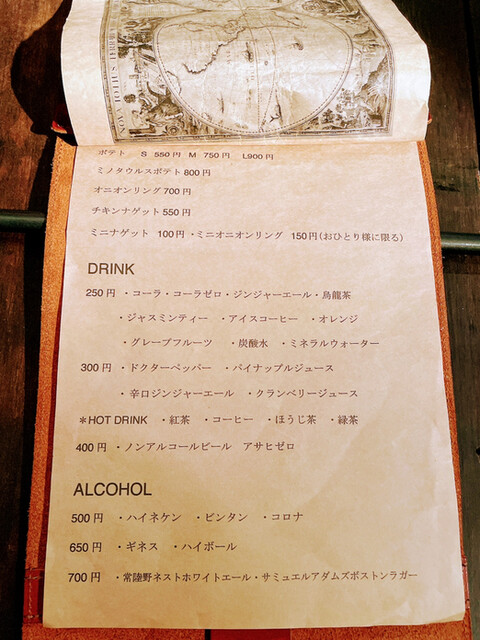 ポテト S 550円 M 750円 L900円
ミノタウルスポテト 800円
オニオンリング 700円
チキンナゲット 550円
ミニナゲット 100円 ・ミニオニオンリング 150円(おひとり様に限る)
DRINK
250円 ・コーラ・コーラゼロ・ジンジャーエール・烏龍茶
・ジャスミンティー ・アイスコーヒー ・オレンジ
・グレープフルーツ ・炭酸水 ・ミネラルウォーター
300円 ・ドクターペッパー ・パイナップルジュース
・辛口ジンジャーエール ・クランベリージュース
＊HOT DRINK ・紅茶 ・コーヒー ・ほうじ茶 ・緑茶
400円 ・ノンアルコールビール アサヒゼロ
ALCOHOL
500円 ・ハイネケン ・ビンタン ・コロナ
650円 ・ギネス ・ハイボール
700円 ・常陸野ネストホワイトエール・サミュエルアダムズボストンラガー